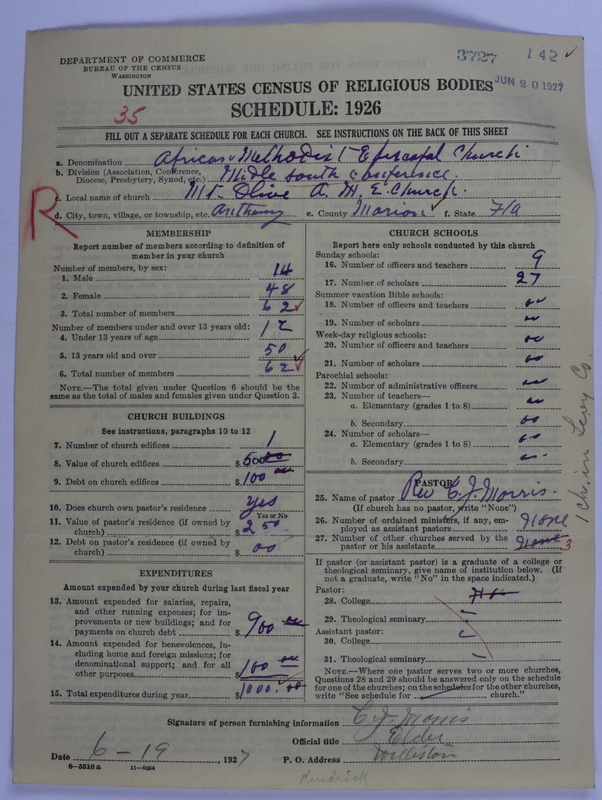 3727 142
DEPARTMENT OF COMMERCE
BUREAU OF THE CENSUS
WASHINGTON
JUN 20 1927
UNITED STATES CENSUS OF RELIGIOUS BODIES
35
SCHEDULE: 1926
FILL OUT A SEPARATE SCHEDULE FOR EACH CHURCH. SEE INSTRUCTIONS ON THE BACK OF THIS SHEET
a. Denomination African Methodist Episcopal Church
b. Division (Association, Conference, Diocese, Presbytery, Synod, etc.) Midle south conference
c. Local name of church Mt. Olive A. M. E. Church.
R
d. City, town, village, or township, etc. Anthony e. County Marion f. State Fla
MEMBERSHIP
Report number of members according to definition of
member in your church
Number of members, by sex:
1. Male 14
2. Female 48
3. Total number of members 62
Number of members under and over 13 years old:
4. Under 13 years of age 12
5. 13 years old and over 50
6. Total number of members 62
NOTE.—The total given under Question 6 should be
same as the total of males and females given under Question 3.
CHURCH BUILDINGS
See instructions, paragraphs 10 to 12
7. Number of church edifices 1
8. Value of church edifices $
9. Debt on church edifices $ 100 00
10. Does church own pastor's residence yes
Yes or No
11. Value of pastor's residence (if owned by
church) $ 250
12. Debt on pastor's residence (if owned by
church) $ 00
EXPENDITURES
Amount expended by your church during last fiscal year
13. Amount expended for salaries, repairs,
and other running expenses; for im-
provements or new buildings; and for
payments on church debt $ 900 00
14. Amount expended for benevolences, in-
cluding home and foreign missions; for
denominational support; and for all
other purposes $ 100 00
15. Total expenditures during year $ 1000.00
CHURCH SCHOOLS
Report here only schools conducted by this church
Sunday schools:
16. Number of officers and teachers 9
17. Number of scholars 27
Summer vacation Bible schools:
18. Number of officers and teachers 00
19. Number of scholars 00
Week-day religious schools:
20. Number of officers and teachers 00
21. Number of scholars 00
Parochial schools:
22. Number of administrative officers 00
23. Number of teachers—
a. Elementary (grades 1 to 8) 00
b. Secondary 00
24. Number of scholars—
a. Elementary (grades 1 to 8) 00
b. Secondary 00
PASTOR
25. Name of pastor Rev C. J. Morris.
(If church has no pastor, write "None")
26. Number of ordained ministers, if any, em-
ployed as assistant pastors None
27. Number of other churches served by the
pastor or his assistants None 3
If pastor (or assistant pastor) is a graduate of a college or
theological seminary, give name of institution below. (If
not a graduate, write "No" in the space indicated.)
Pastor:
28. College
29. Theological seminary
Assistant pastor:
30. College
31. Theological seminary
NOTE.—Where one pastor serves two or more churches,
Questions 28 and 29 should be answered only on the schedule
for one of the churches; on the schedules for the other churches,
write "See schedule for church."
1 ch. in Levy Co.
Signature of person furnishing information C. J. Morris
Official title Elder
Date 6-19, 1927 P. O. Address Williston
8-5518a 11-9264
Kendrick